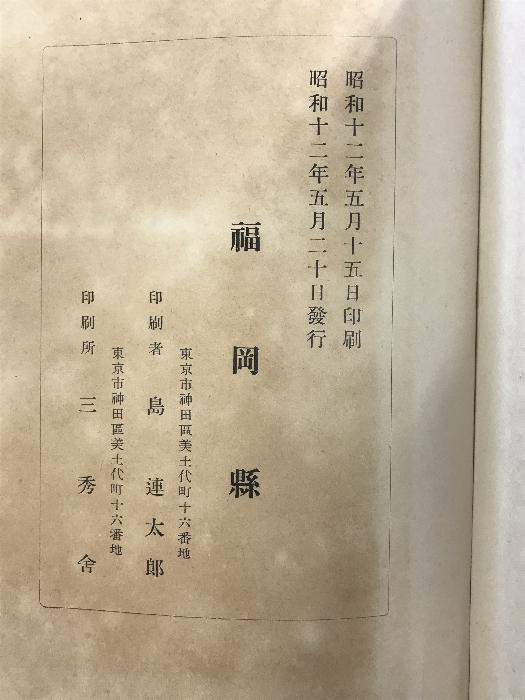 昭和十二年五月十五日印刷
昭和十二年五月二十日發行
福岡縣
東京市神田區美土代町十六番地
印刷者 島連太郎
東京市神田區美土代町十六番地
印刷所 三秀舍